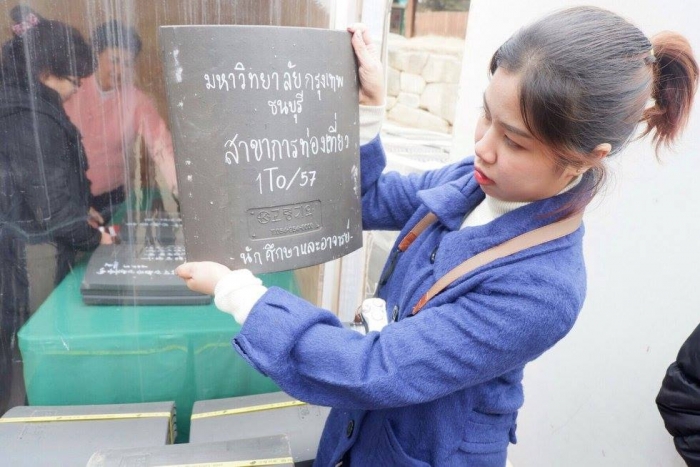 มหาวิทยาลัยกรุงเทพ
ธนบุรี
สาขาการท่องเที่ยว
1To/57
นักศึกษาและอาจารย์